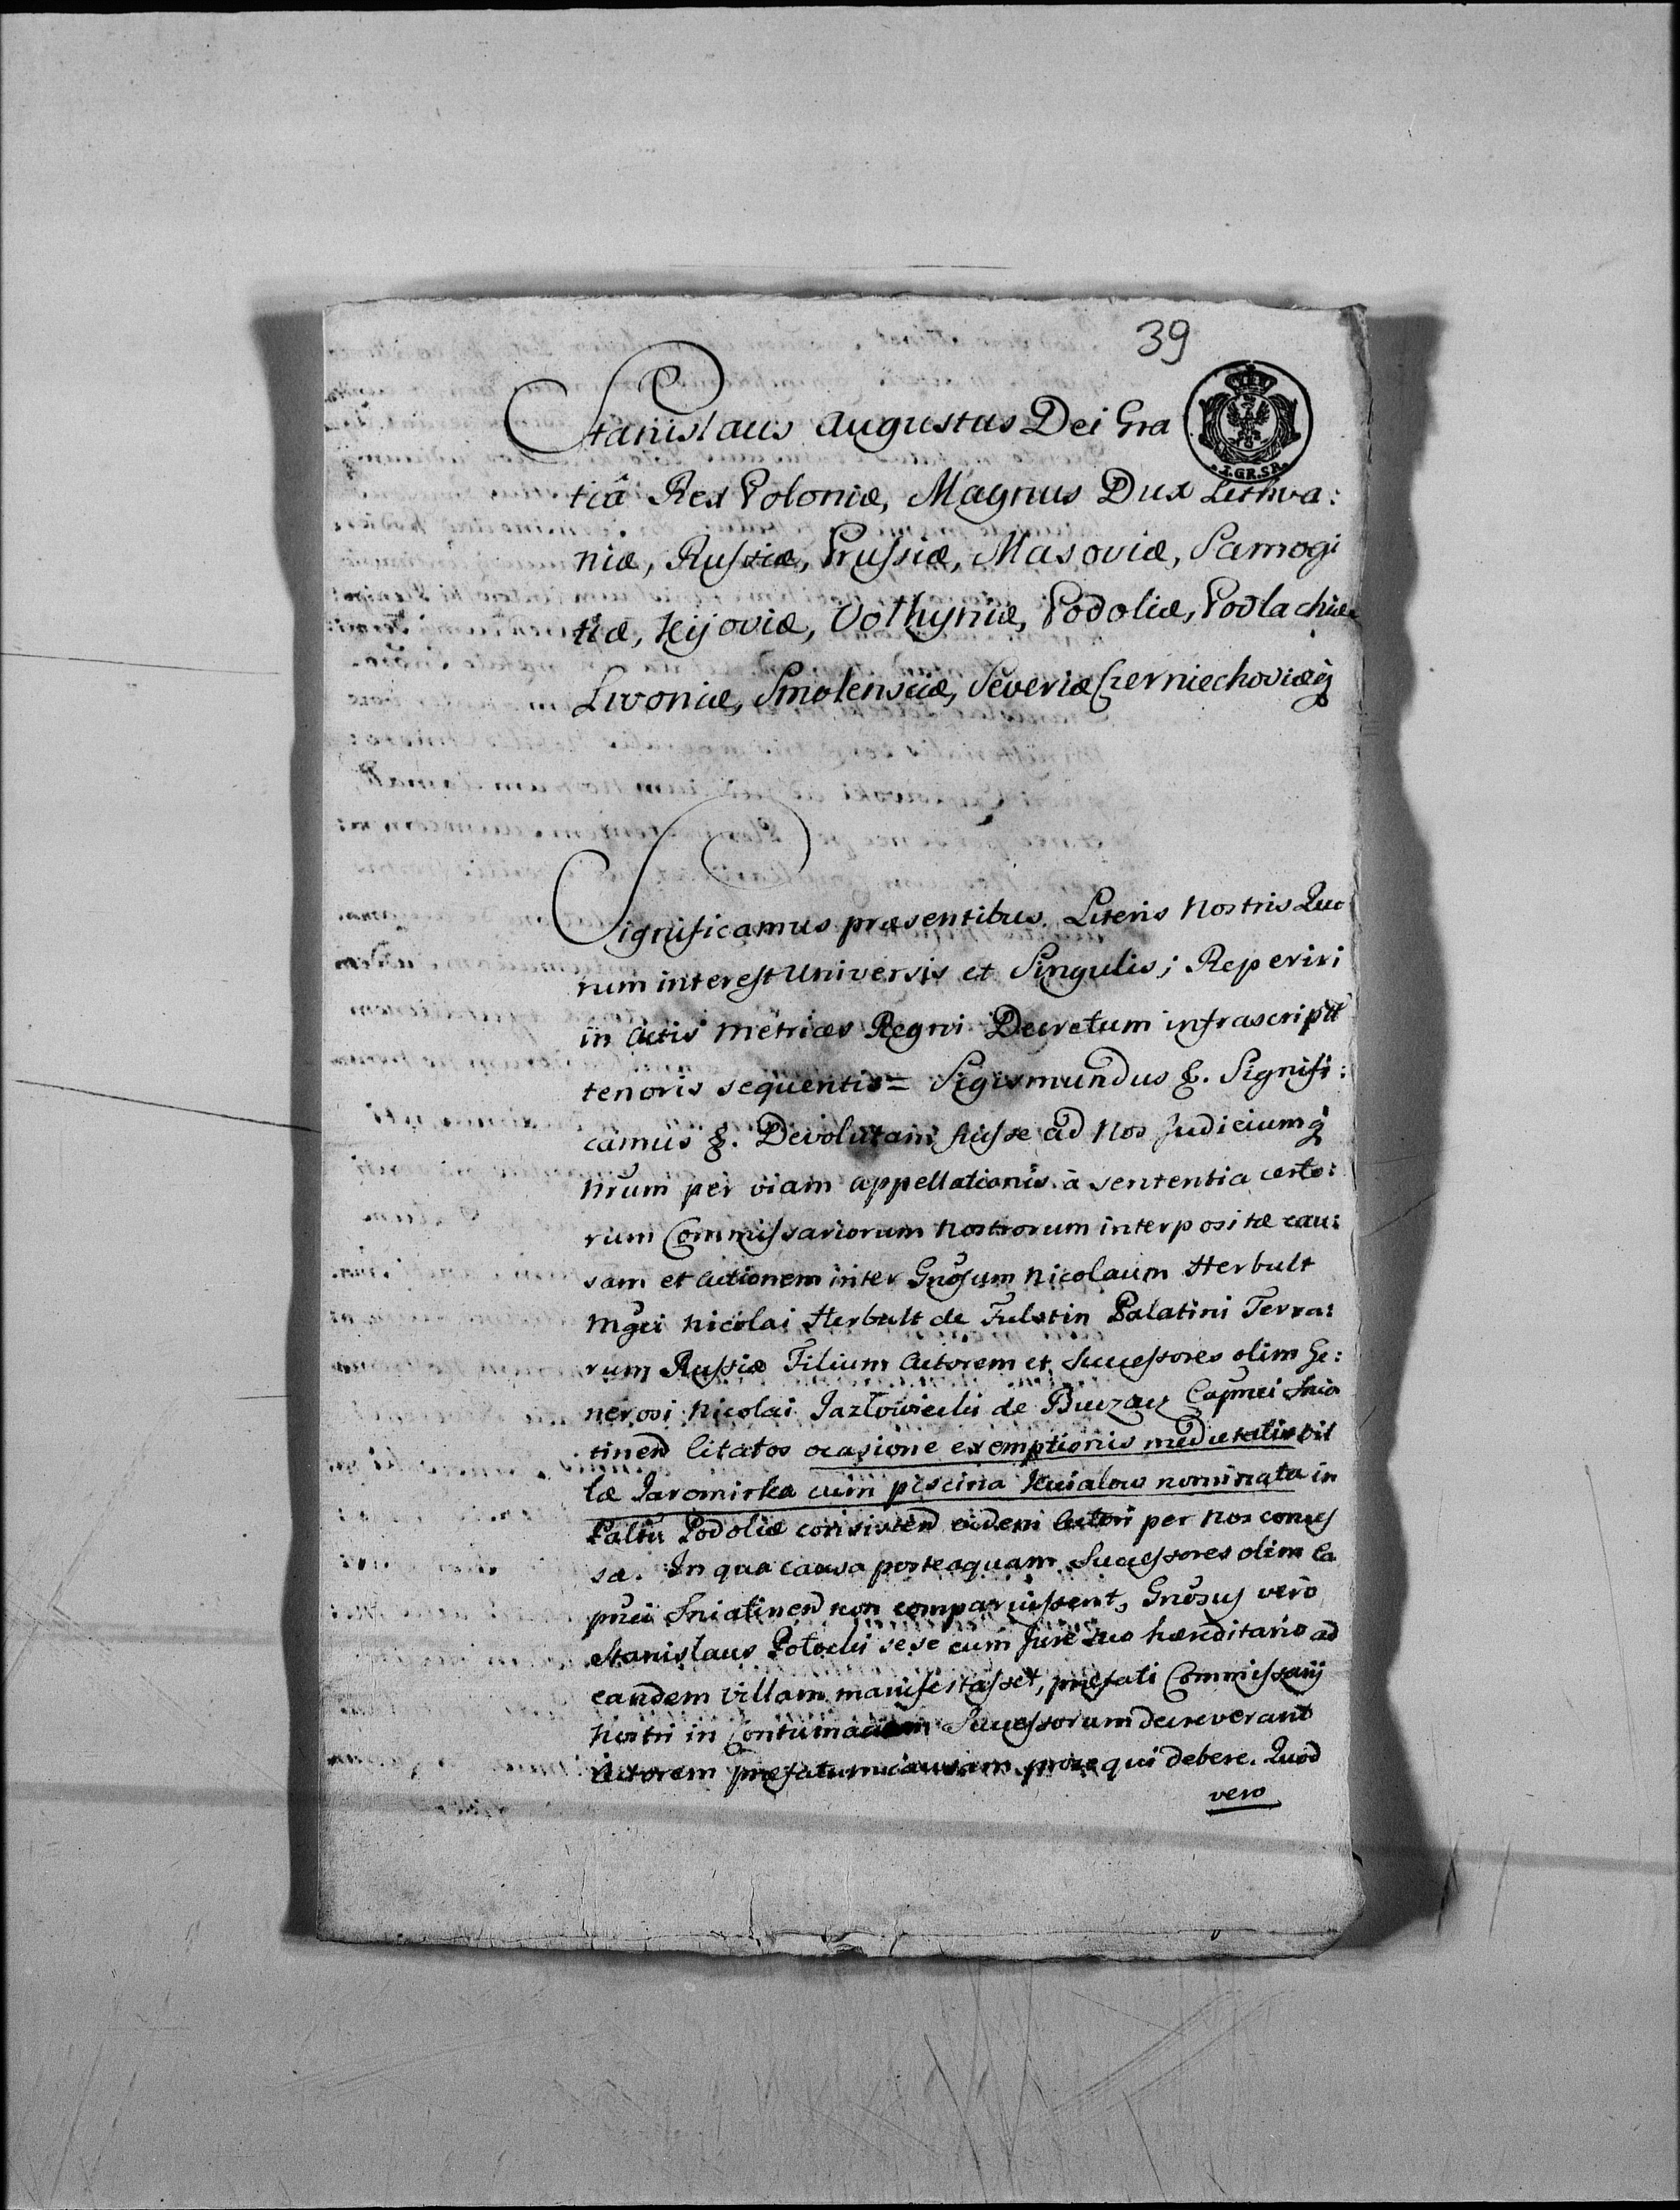 39
Stanislaus Augustus Dei Gra
I.GR.SR.
tiâ Rex Poloniæ, Magnus Dux Lithva:
niæ, Russiæ, Prussiæ, Masoviæ, Samogi
tiæ, Kijoviæ, Volhyniæ, Podoliæ, Podlachiæ
Livoniæ, Smolensciæ, Severiæ Czerniechoviæq̃
Significamus præsentibus Literis Nostris Quo
rum interest Universis et Singulis; Reperiri
in Actis Metrices Regni Decretum infrascripti
tenoris sequentis = Sigismundus &. Signifi:
camus &. Devolutam fuisse ad Nos Judiciumq̃
Nrum per viam appellationis à sententia certo:
rum Commissariorum Nostrorum interpositæ cau:
sam et actionem inter Gnõsum Nicolaum Herbult
Mgci Nicolai Herbult de Fulstin Palatini Terra:
rum Russiæ Filium Actorem et Successores olim Ge:
nerosi Nicolai Jazlowiecki de Buczacz Capnei Snia
tinen citatos ocasione exemptionis medietatis vil
læ Jaromirka cum piscina nominata in
Paltu Podoliæ consisten eidem Actori per Nos conces
sa. In qua causa posteaquam Successores olim Ca
pnei Sniatinen non comparuissent, Gnosus vero
Stanislaus Potocki sese cum Jure suo hæreditario ad
eandem villam manifestasset, præfati Commissarij
Nostri in Contumaciam Successorum decreverant
Actorem præfatum causam prosequi debere. Quod
vero